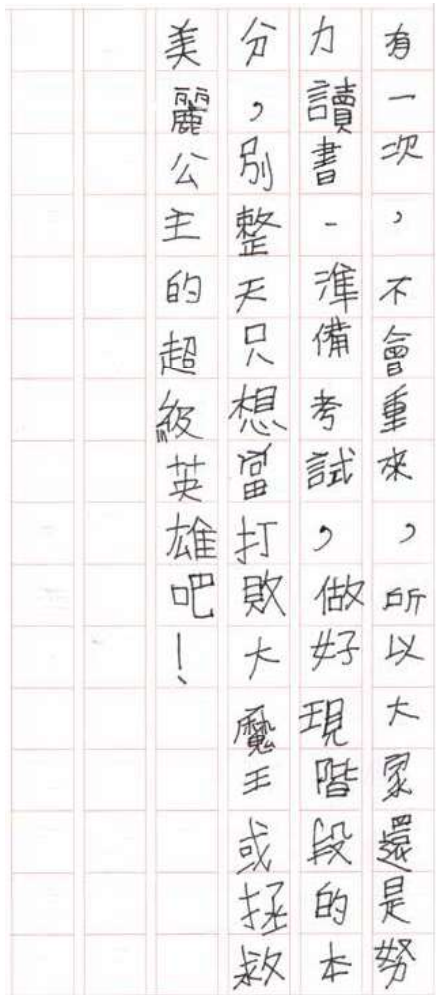 有一次，不會重來，所以大家還是努
力讀書-準備考試，做好現階段的本
分，別整天只想當打敗大魔王或拯救
美麗公主的超級英雄吧！